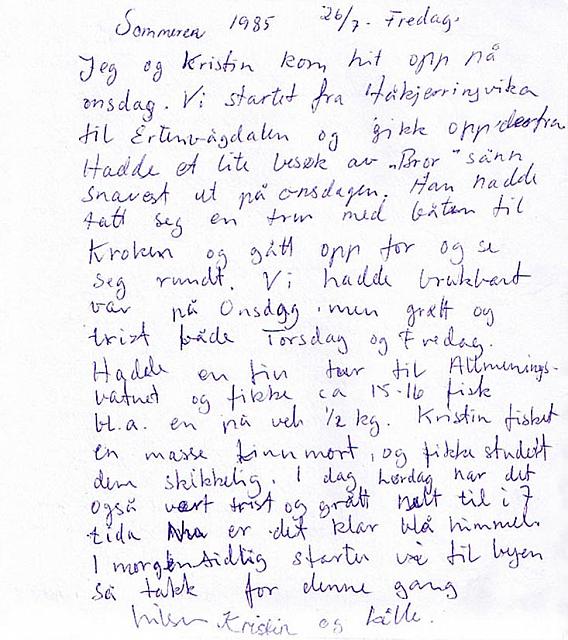 Sommeren 1985 26/7. Fredag.
Jeg og Kristin kom hit opp på
onsdag. Vi startet fra Håkjerringvika
til Ertenvågdalen og gikk opp derfra
Hadde et lite besøk av "Bror" sånn
snarest ut på onsdagen. Han hadde
tatt seg en trur med båten til
Kroken og gått opp for og se
seg rundt. Vi hadde brukbart
vær på Onsdag men grått og
trist både Torsdag og Fredag.
Hadde en fin tur til Allmenings-
vatnet og fikke ca 15-16 fisk
bl.a. en på vel 1/2 kg. Kristin fisket
en masse finnmort, og fikke studert
dem skikkelig. I dag Lørdag har det
også vært trist og grått helt til i 7
tida Nu er det klar blå himmel.
I morgen tidlig starter vi til byen
så takk for denne gang
hilsen Kristin og Kålle.